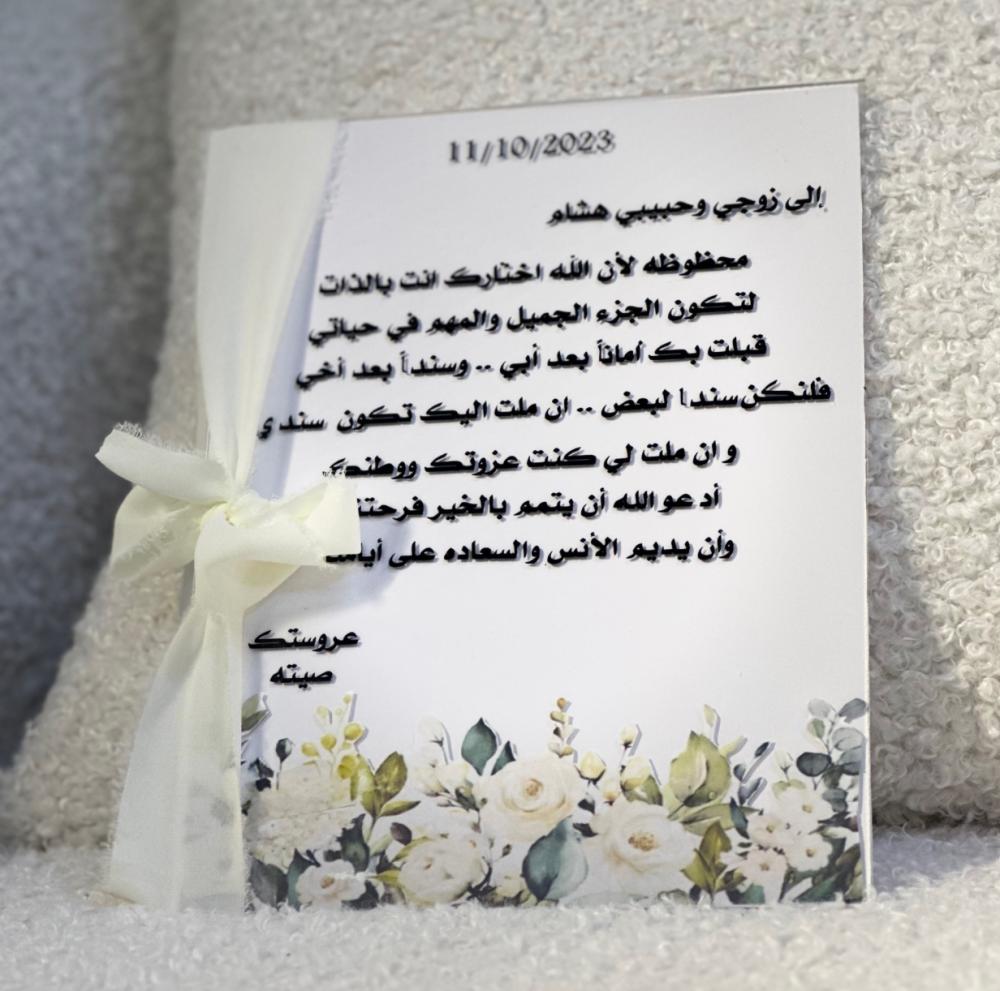 11/10/2023
إلى زوجي وحبيبي هشام
محظوظه لأن الله اختارك انت بالذات
لتكون الجزء الجميل والمهم في حياتي
قبلت بك أماناً بعد أبي .. وسنداً بعد أخي
فلنكن سنداً لبعض .. ان ملت اليك تكون سندي
و ان ملت لي كنت عزوتك ووطنك
أدعو الله أن يتمم بالخير
وأن يديم الأنس والسعاده على
عروستك
صيته